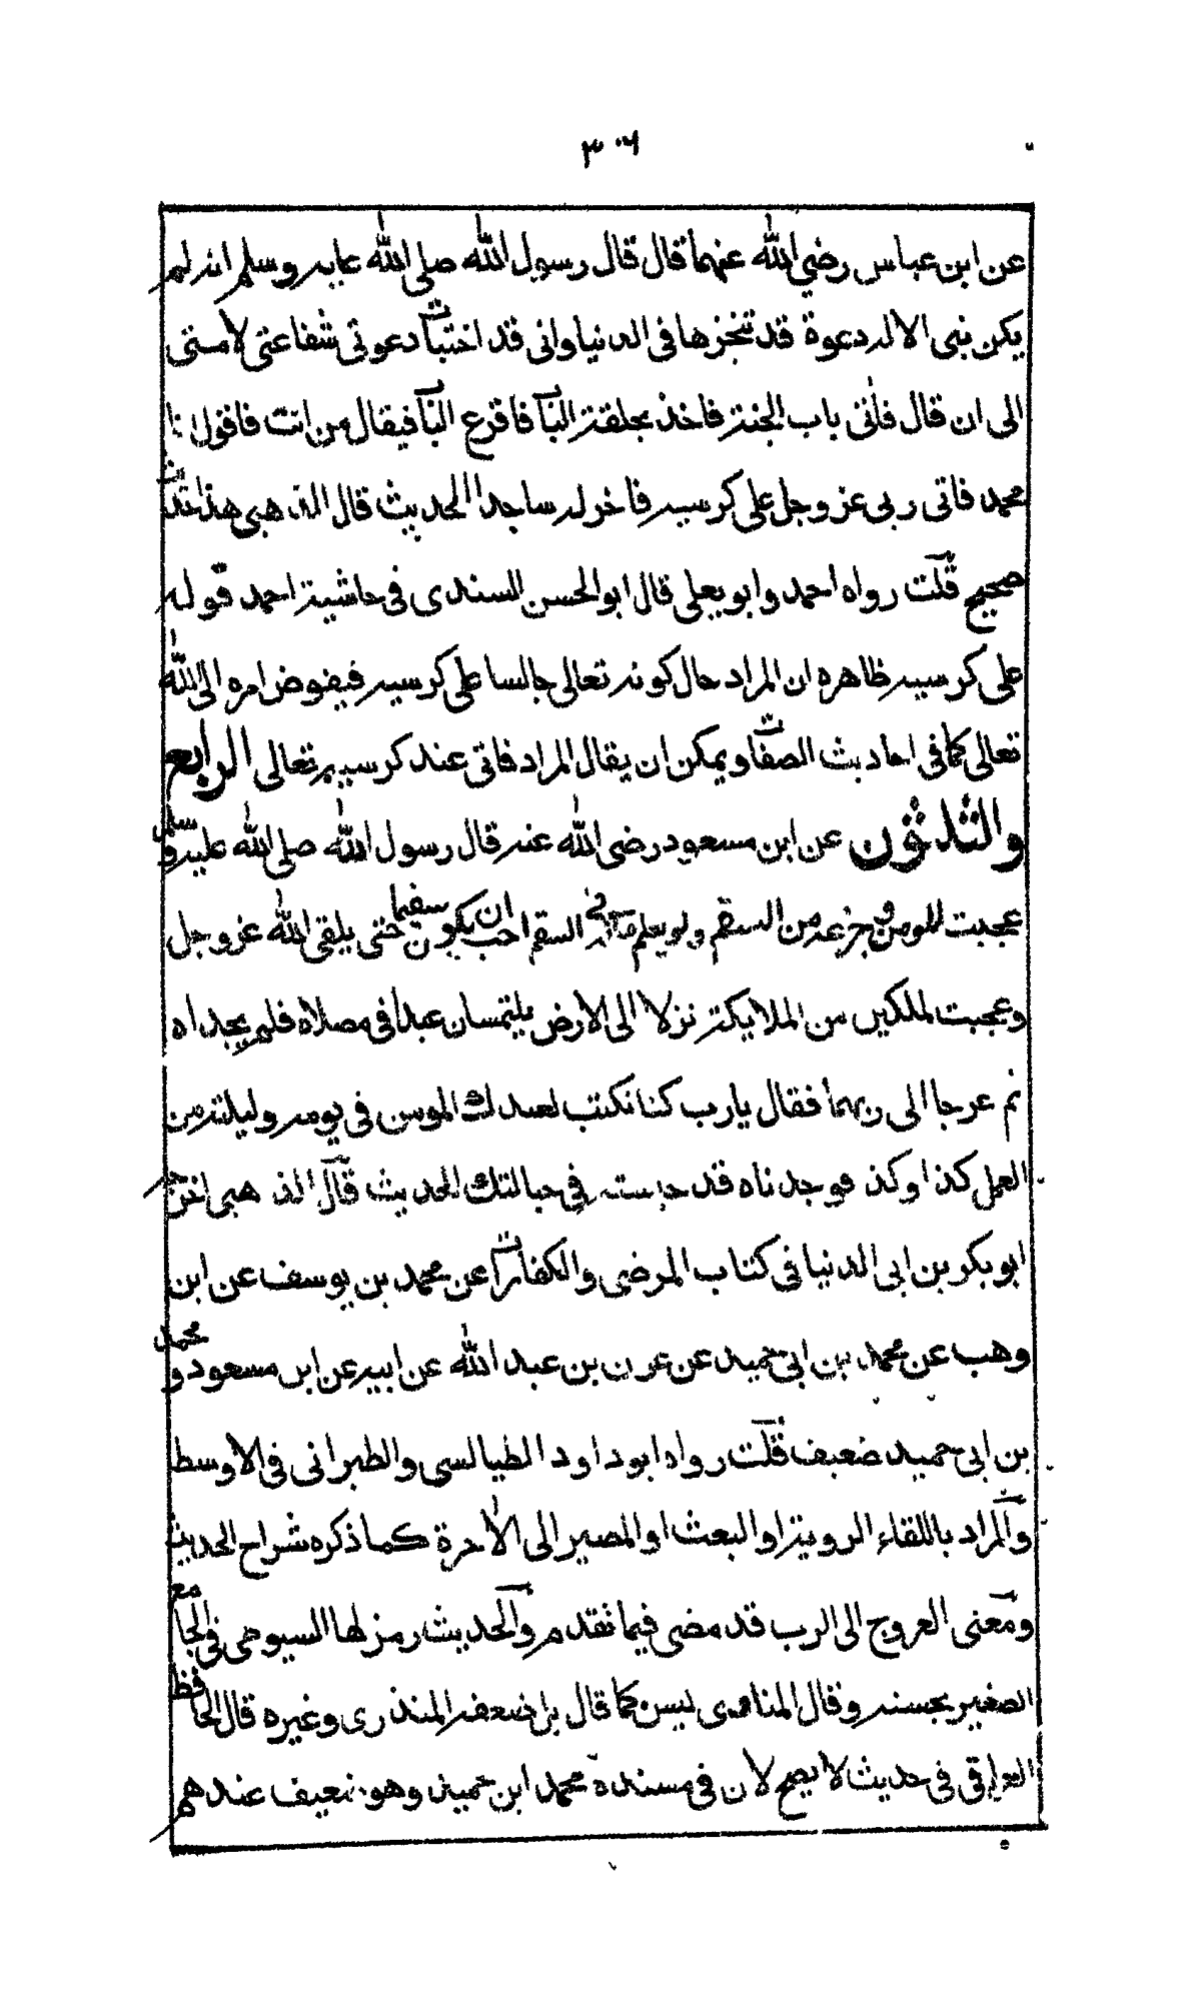 ٣٠٦
عن ابن عباس رضي الله عنهما قال قال رسول الله صلى الله عليه وسلم انه لم
يكن نبى الا له دعوة قد تنجزها فى الدنيا وانى قد اختبات دعوتى شفاعتى لامتى
الى ان قال فأتى باب الجنة فاخذ بحلقة الباب فاقرع الباب فيقال من انت فاقول انا
محمد فاتى ربى عز وجل على كرسيه فاخر له ساجدا الحديث قال الذهبى هذا حديث
صحيح قلت رواه احمد وابو يعلى قال ابو الحسن السندى فى حاشية احمد قوله
على كرسيه ظاهره ان المراد حال كونه تعالى جالسا على كرسيه فيفوض امره الى الله
تعالى كما فى احاديث الصفات ويمكن ان يقال المراد فاتى عند كرسيه تعالى الرابع
والثلثون عن ابن مسعود رضى الله عنه قال رسول الله صلى الله عليه وسلم
عجبت للمومن وجزعه من السقم ولو يعلم ماله فى السقم احب ان يكون سقيما حتى يلقى الله عز وجل
وعجبت لملكين من الملايكة نزلا الى الارض يلتمسان عبدا فى مصلاه فلم يجداه
ثم عرجا الى ربهما فقال يارب كنا نكتب لعبدك المومن فى يومه وليلته من
العمل كذا وكذا فوجدناه قد حبسته فى حبالتك الحديث قال الذهبى اخرجه
ابو بكر بن ابى الدنيا فى كتاب المرضى والكفارات عن محمد بن يوسف عن ابن
وهب عن محمد بن ابى حميد عن عون بن عبد الله عن ابيه عن ابن مسعود ومحمد
بن ابى حميد ضعيف قلت رواه ابو داود الطيالسى والطبرانى فى الاوسط
والمراد باللقاء الروية او البعث او المصير الى الاخرة كما ذكره شراح الحديث
ومعنى العروج الى الرب قد مضى فيما تقدم والحديث رمز لها السيوطى فى الجامع
الصغير بحسنه وقال المناوى ليس كما قال بل ضعفه المنذرى وغيره قال الحافظ
العراقى فى حديث لا يصح لان فى مسنده محمد ابن حميد وهو ضعيف عندهم